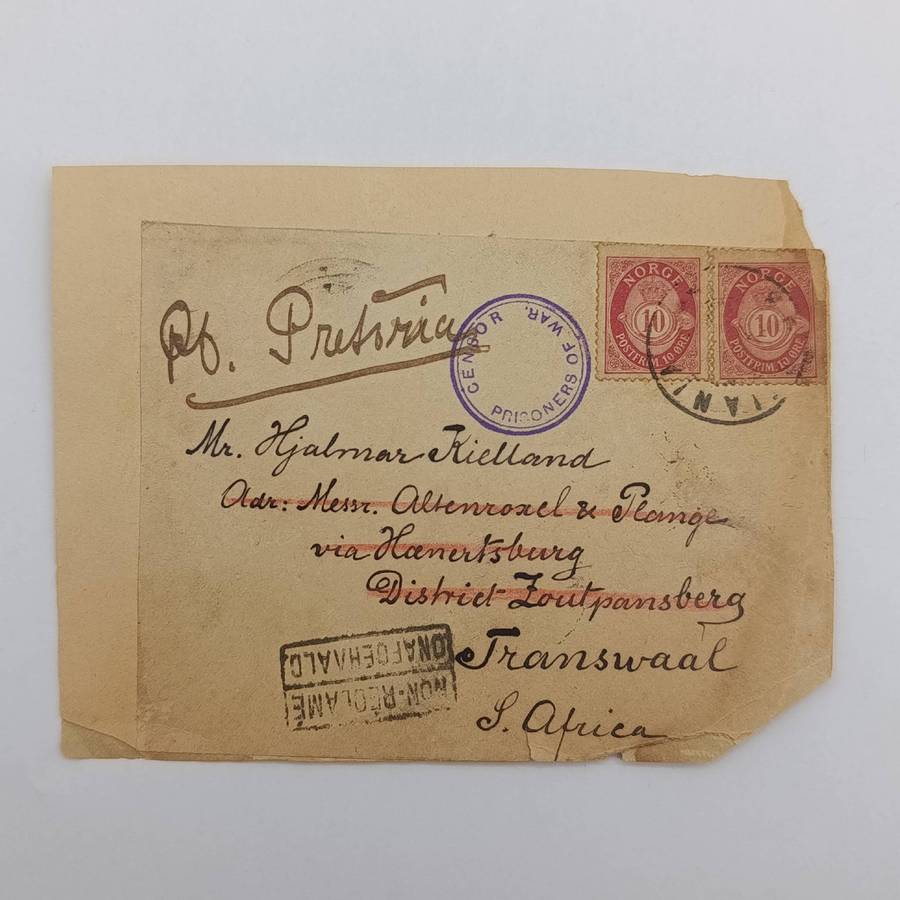 NORGE
10
POSTFRIM. 10 ØRE
NORGE
10
POSTFRIM. 10 ØRE
IANIA
Pretoria
CENSOR PRISONERS OF WAR.
Mr. Hjalmar Kielland
Adr: Messr. Altenroxel & Plange
via Hænertsburg
District Zoutpansberg
Transwaal
S. Africa
NON-RECLAMÉ
ONAFGEHAALD